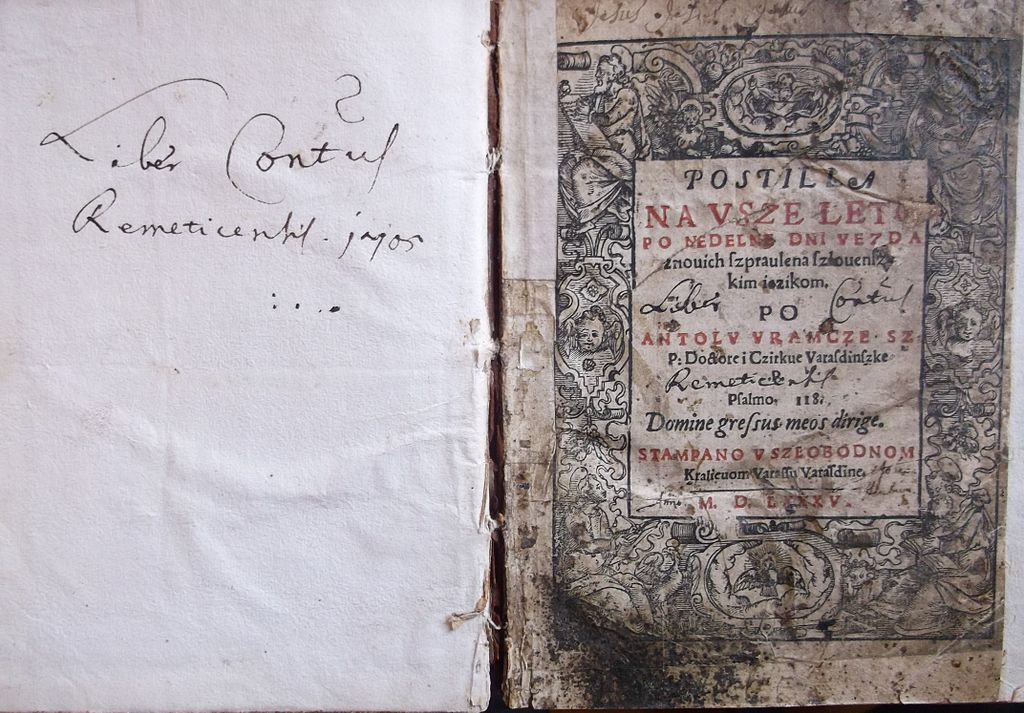 Liber Contus
Remeticensis.
Jesus Jesus
POSTILLA
NA VSZE LETO
PO NEDELNE DNI VEZDA
znouich ſzprauſena ſzlouenſz
kim iezikom.
Liber Contus
PO
ANTOLV VRAMCZE SZ.
P: Doctore i Czirkue Varaſdinſzke
Remeticensis
Pſalmo. 118.
Domine greſsus meos dirige.
STAMPANO V SZLOBODNOM
Kralieuom Varaſſu Varaſdine.
M. D. LXXXV.